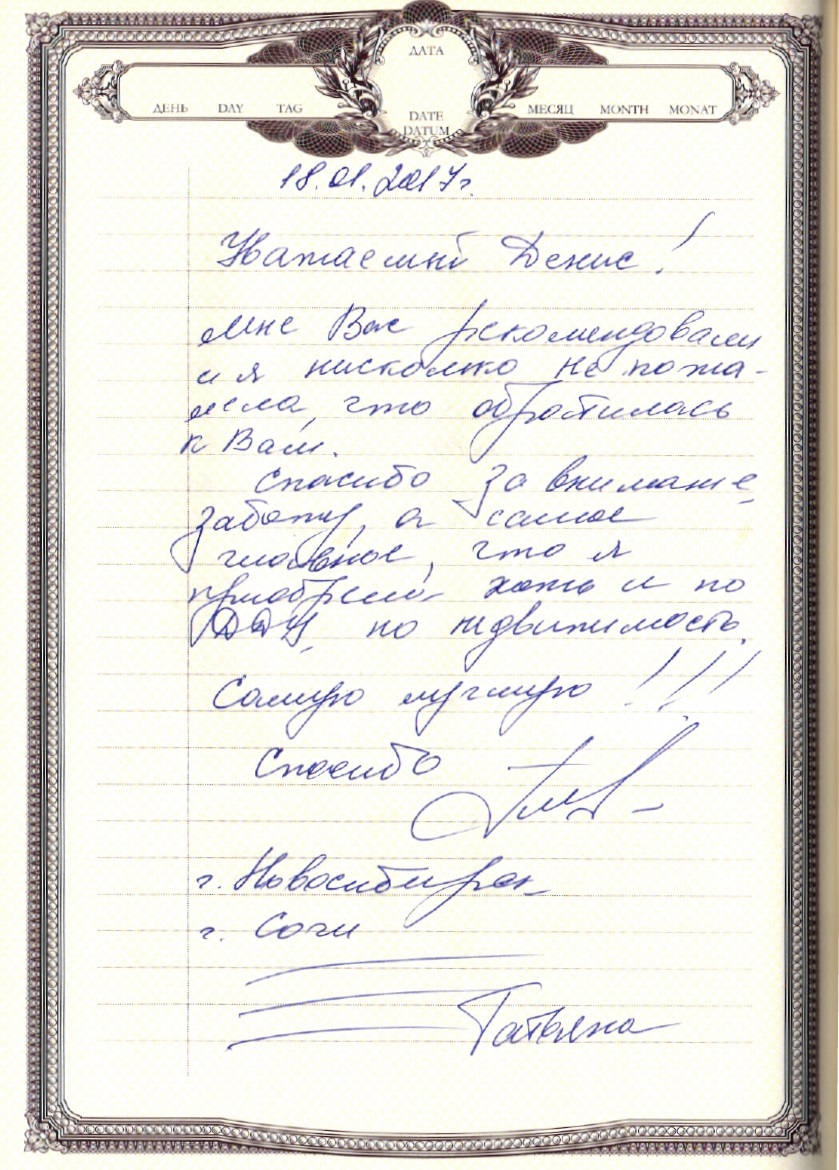 ДАТА
ДЕНЬ DAY TAG
DATE
DATUM
МЕСЯЦ MONTH MONAT
18.01.2017г.
Уважаемый Денис!
Мне Вас рекомендовали
и я нисколько не пожа-
лела, что обратилась
к Вам.
Спасибо за внимание,
заботу, а самое
главное, что я
приобрела хоть и по
ДДУ, но недвижимость.
Самую лучшую!!!
Спасибо
г. Новосибирск
г. Сочи
Татьяна